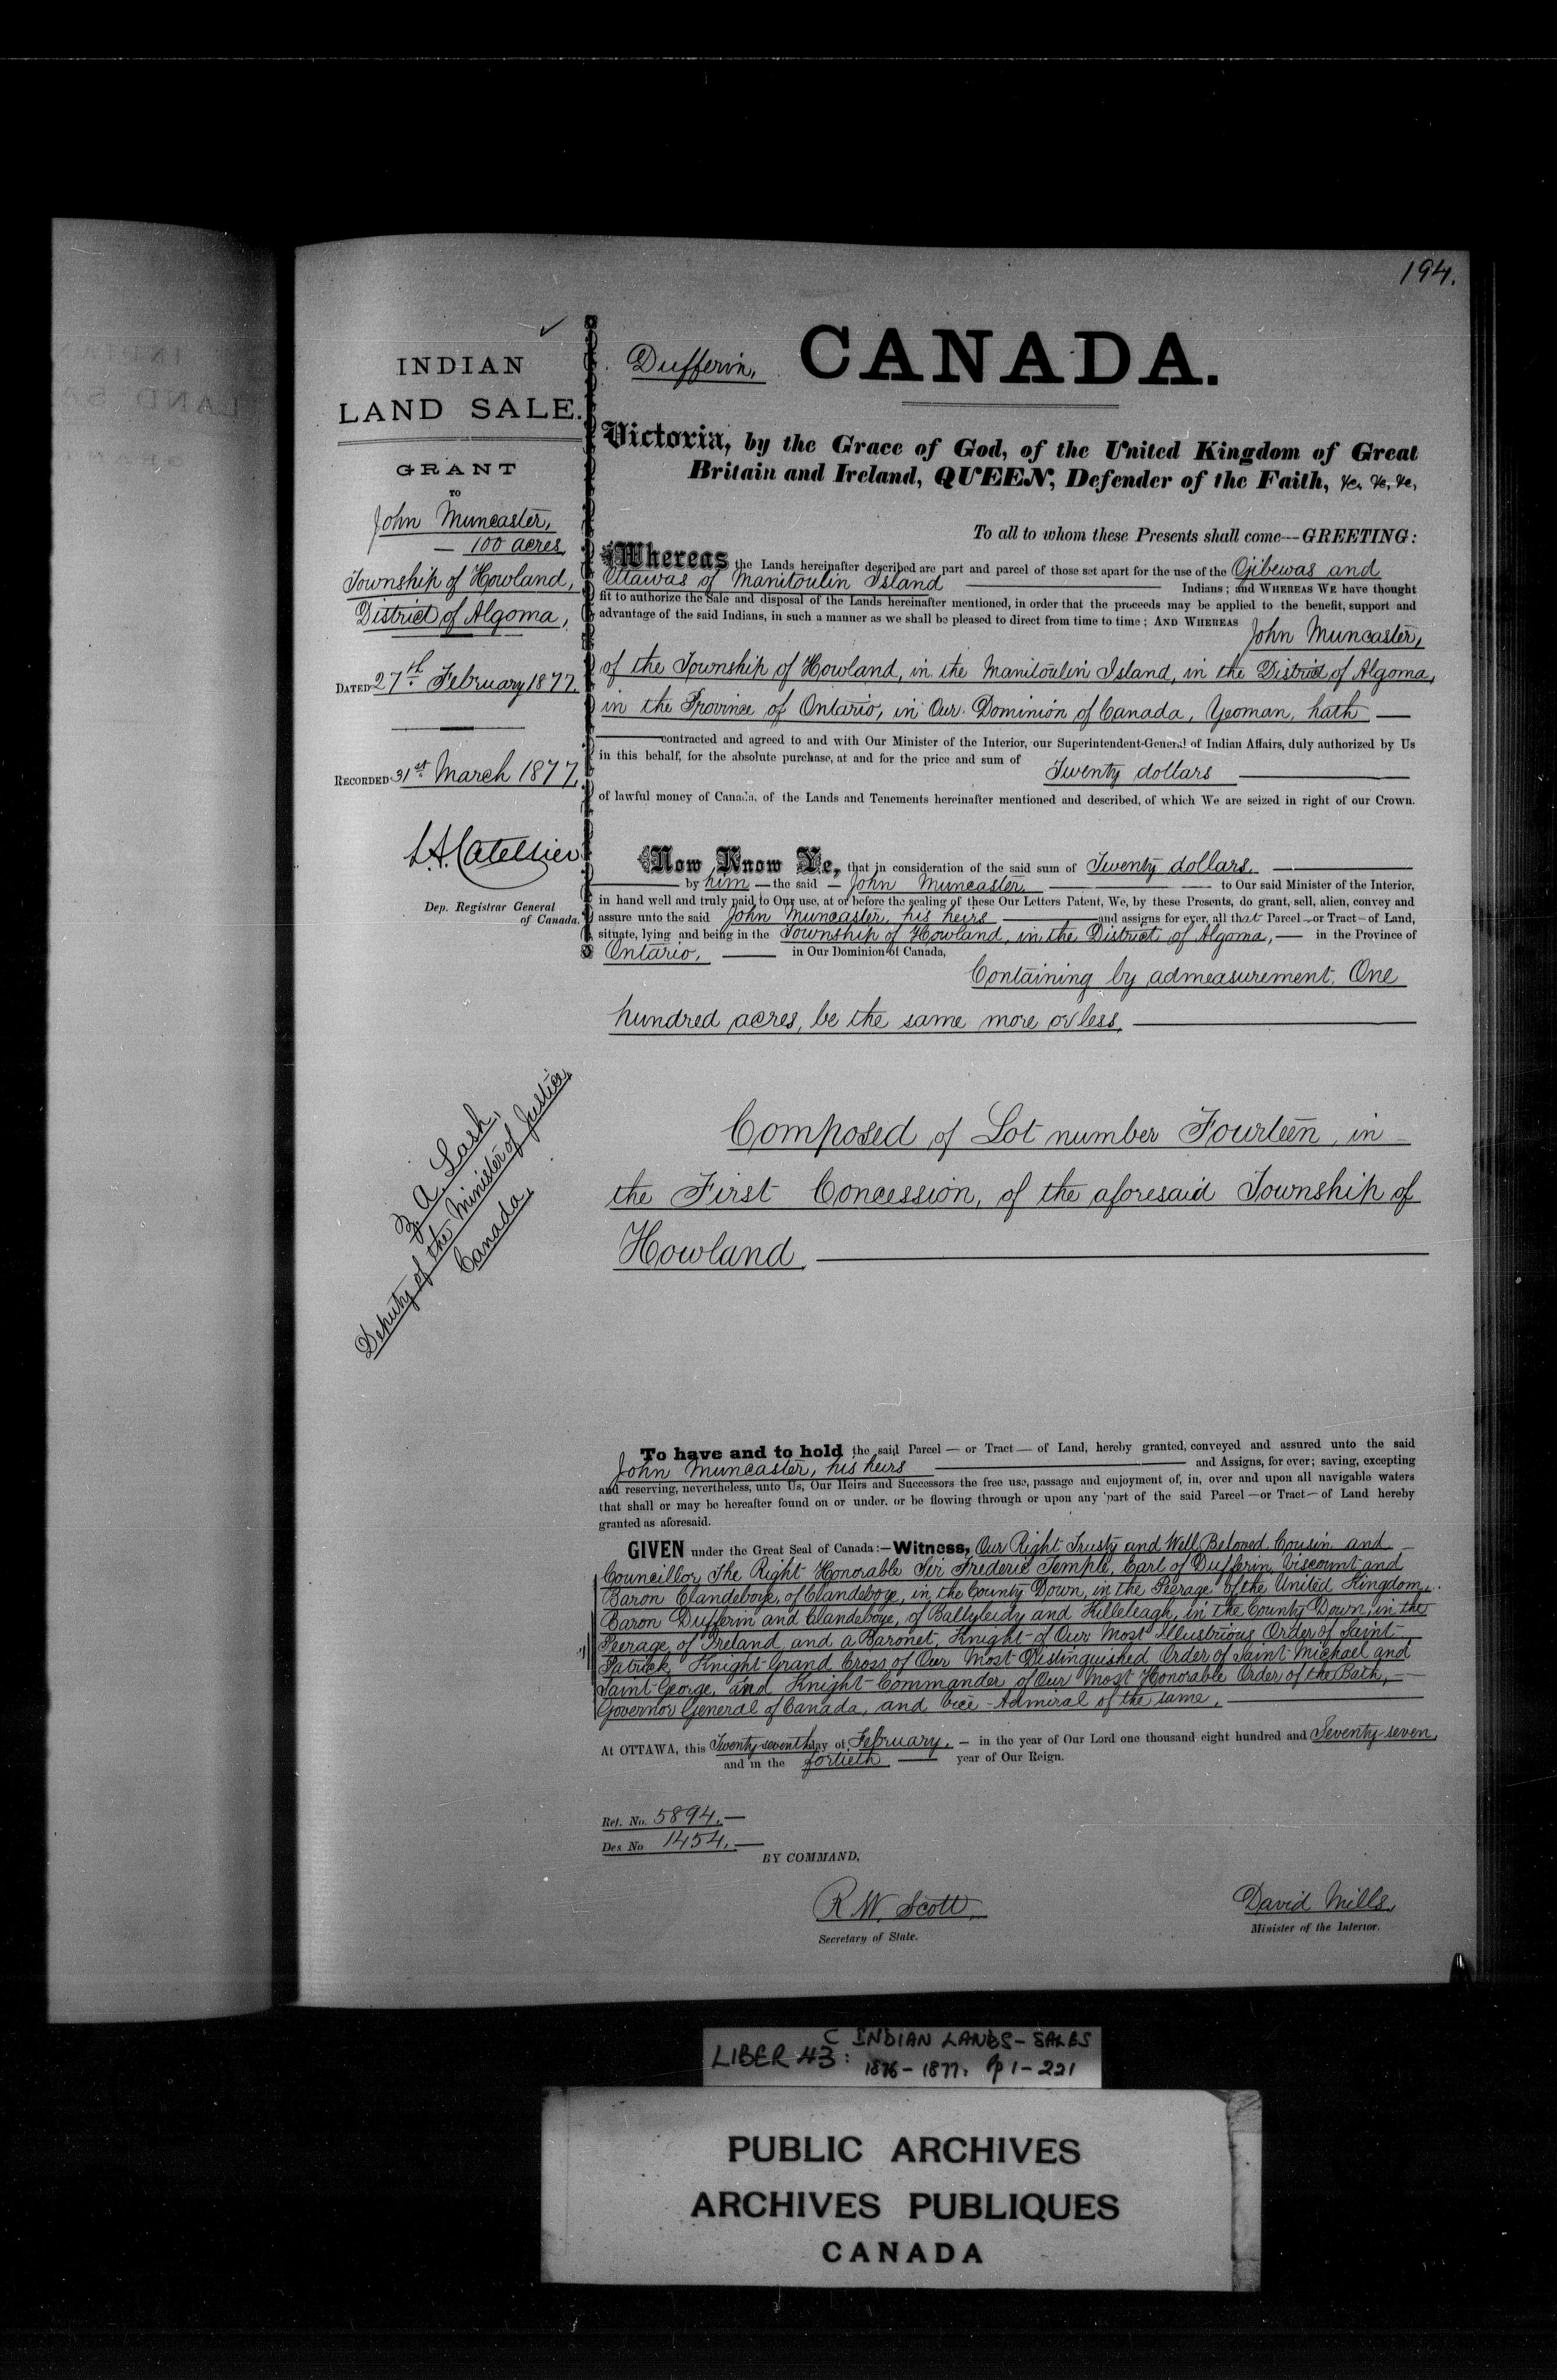 194.
INDIAN
LAND SALE.
GRANT
TO
John Muncaster,
— 100 acres,
Township of Howland,
District of Algoma,
DATED 27th February 1877.
RECORDED 31st March 1877.
L.A. Catellier
Dep. Registrar General
of Canada.
Z. A. Lash,
Deputy of the Minister of Justice,
Canada.
Dufferin, CANADA.
Victoria, by the Grace of God, of the United Kingdom of Great
Britain and Ireland, QUEEN, Defender of the Faith, &c, &c, &c,
To all to whom these Presents shall come—GREETING:
Whereas the Lands hereinafter described are part and parcel of those set apart for the use of the Ojibewas and
Ottawas of Manitoulin Island — Indians; and WHEREAS WE have thought
fit to authorize the Sale and disposal of the Lands hereinafter mentioned, in order that the proceeds may be applied to the benefit, support and
advantage of the said Indians, in such a manner as we shall be pleased to direct from time to time; AND WHEREAS John Muncaster,
of the Township of Howland, in the Manitoulin Island, in the District of Algoma,
in the Province of Ontario, in Our Dominion of Canada, Yeoman, hath —
contracted and agreed to and with Our Minister of the Interior, our Superintendent-General of Indian Affairs, duly authorized by Us
in this behalf, for the absolute purchase, at and for the price and sum of Twenty dollars —
of lawful money of Canada, of the Lands and Tenements hereinafter mentioned and described, of which We are seized in right of our Crown.
Now Know Ye, that in consideration of the said sum of Twenty dollars, —
by him — the said — John Muncaster — to Our said Minister of the Interior,
in hand well and truly paid to Our use, at or before the sealing of these Our Letters Patent, We, by these Presents, do grant, sell, alien, convey and
assure unto the said John Muncaster, his heirs — and assigns for ever, all that Parcel — or Tract — of Land,
situate, lying and being in the Township of Howland, in the District of Algoma, — in the Province of
Ontario, — in Our Dominion of Canada,
Containing by admeasurement, One
hundred acres, be the same more or less, —
Composed of Lot number Fourteen, in —
the First Concession, of the aforesaid Township of
Howland. —
To have and to hold the said Parcel — or Tract — of Land, hereby granted, conveyed and assured unto the said
John Muncaster, his heirs — and Assigns, for ever; saving, excepting
and reserving, nevertheless, unto Us, Our Heirs and Successors the free use, passage and enjoyment of, in, over and upon all navigable waters
that shall or may be hereafter found on or under. or be flowing through or upon any part of the said Parcel — or Tract — of Land hereby
granted as aforesaid.
GIVEN under the Great Seal of Canada:—Witness, Our Right Trusty and Well Beloved Cousin and —
Councillor, The Right Honorable Sir Frederic Temple, Earl of Dufferin, Viscount and
Baron Clandeboye, of Clandeboye, in the County Down, in the Peerage of the United Kingdom,
Baron Dufferin and Clandeboye, of Ballyleidy and Killeleagh, in the County Down, in the
Peerage of Ireland, and a Baronet, Knight of Our Most Illustrious Order of Saint
Patrick, Knight Grand Cross of Our Most Distinguished Order of Saint Michael and
Saint George, and Knight Commander of Our Most Honorable Order of the Bath, —
Governor General of Canada, and Vice-Admiral of the same. —
At OTTAWA, this Twenty seventh day of February, — in the year of Our Lord one thousand eight hundred and Seventy seven,
and in the fortieth — year of Our Reign.
Ref. No. 5894. —
Des No 1454. —
BY COMMAND,
R W. Scott
Secretary of State.
David Mills,
Minister of the Interior.
LIBER 43 C: INDIAN LANDS - SALES
1876 - 1877. pp 1 - 221
PUBLIC ARCHIVES
ARCHIVES PUBLIQUES
CANADA